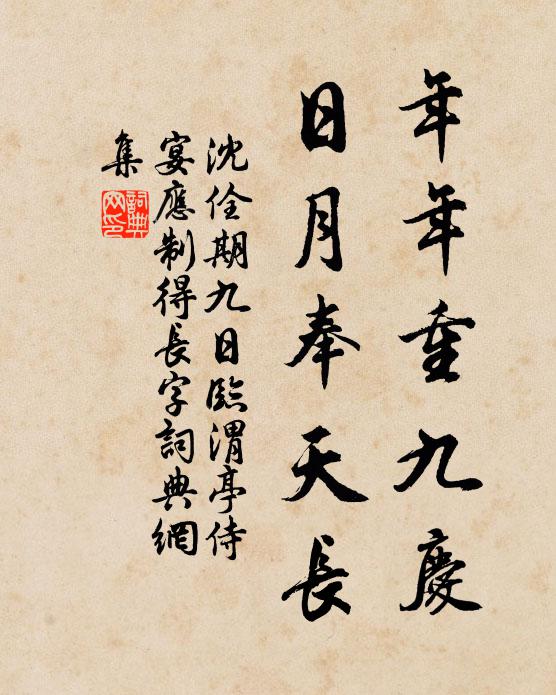 年年重九慶
日月奉天長
沈佺期九日臨渭亭侍
宴應制得長字詞典網
集
詞典
网印